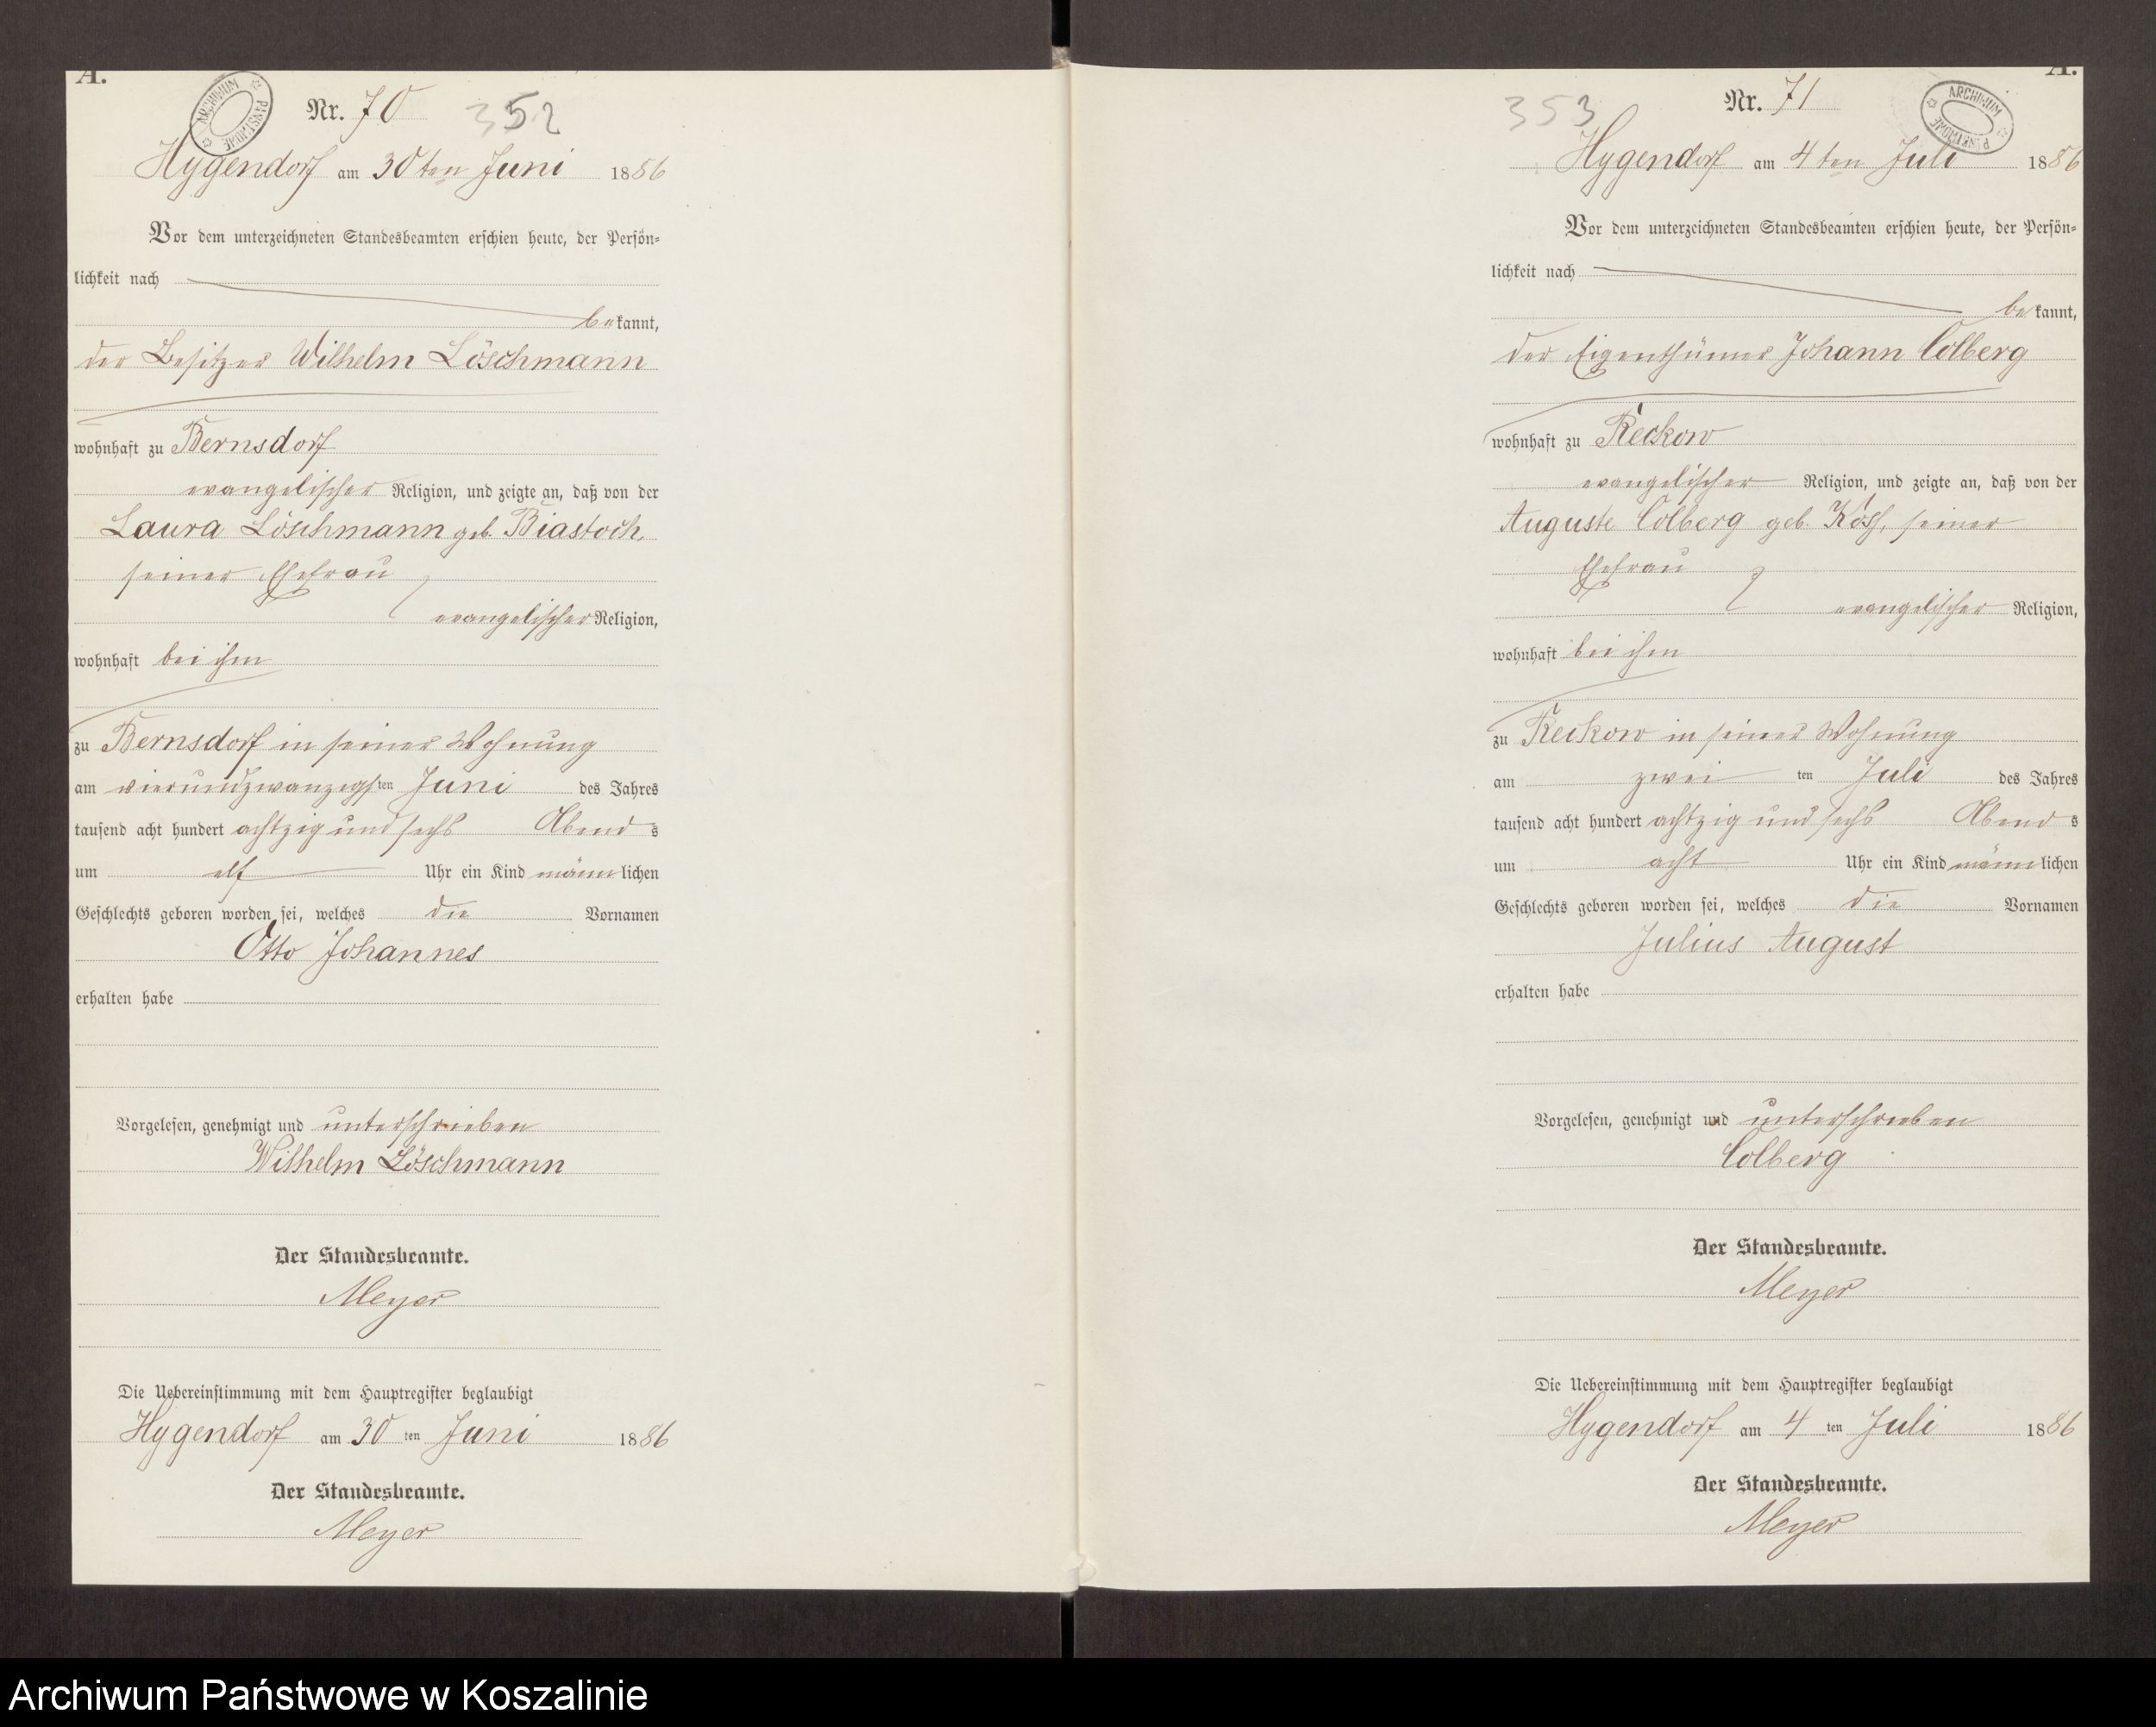 A.
ARCHIWUM PAŃSTWOWE
Nr. 70 352
Hygendorf am 30ten Juni 1886
Vor dem unterzeichneten Standesbeamten erschien heute, der Persön-
lichkeit nach
bekannt,
der Besitzer Wilhelm Löschmann
wohnhaft zu Bernsdorf
evangelischer Religion, und zeigte an, daß von der
Laura Löschmann geb. Biastoch,
seiner Ehefrau
evangelischer Religion,
wohnhaft bei ihm
zu Bernsdorf in seiner Wohnung
am vierundzwanzigsten Juni des Jahres
tausend acht hundert achtzig und sechs Abends
um elf Uhr ein Kind männlichen
Geschlechts geboren worden sei, welches die Vornamen
Otto Johannes
erhalten habe
Vorgelesen, genehmigt und unterschrieben
Wilhelm Löschmann
Der Standesbeamte.
Meyer
Die Uebereinstimmung mit dem Hauptregister beglaubigt
Hygendorf am 30ten Juni 1886
Der Standesbeamte.
Meyer
A.
ARCHIWUM PAŃSTWOWE
353 Nr. 71
Hygendorf am 4ten Juli 1886
Vor dem unterzeichneten Standesbeamten erschien heute, der Persön-
lichkeit nach
bekannt,
der Eigenthümer Johann Colberg
wohnhaft zu Reckow
evangelischer Religion, und zeigte an, daß von der
Auguste Colberg geb. seiner
Ehefrau
evangelischer Religion,
wohnhaft bei ihm
zu Reckow in seiner Wohnung
am zweiten Juli des Jahres
tausend acht hundert achtzig und sechs Abends
um acht Uhr ein Kind männlichen
Geschlechts geboren worden sei, welches die Vornamen
Julius August
erhalten habe
Vorgelesen, genehmigt und unterschrieben
Colberg
Der Standesbeamte.
Meyer
Die Uebereinstimmung mit dem Hauptregister beglaubigt
Hygendorf am 4ten Juli 1886
Der Standesbeamte.
Meyer
Archiwum Państwowe w Koszalinie